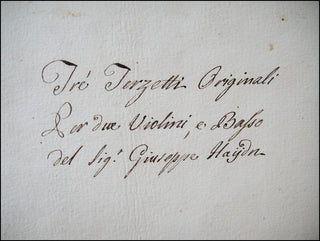 Tré Terzetti Originali
Per due Violini, e Basso
del Sig.r Giuseppe Haÿdn